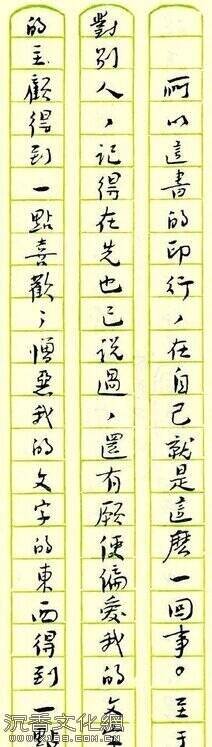 所以這書的印行，在自己就是這麽一回事。至于
對别人，记得在先也已说過，還有願使偏愛我的文字
的主顧得到一點喜歡；憎惡我的文字的東西得到一點
沉香文化網